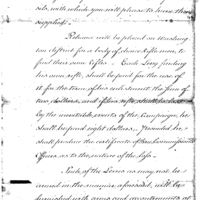 which you will please to have them
supplied.
Reliance will be placed on
for a body of three Rifle men, to
find their own Rifles. Each Levy finding
his own rifle, shall be paid for the use of
it for the term of his enlistment the sum of
two dollars, and if his rifle shall be lost
by the inevitable events of the Campaign, he
shall be paid eight dollars. Provided he
shall produce the certificate of a Commissioned
Officer as to the matter of the loss.
Such of the Levies as may not be
armed in the manner aforesaid, will be
furnished with arms and accoutrements at